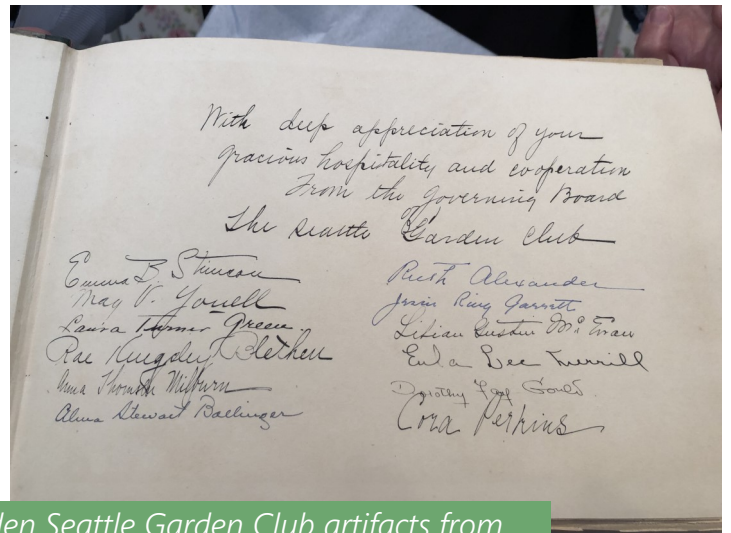 With deep appreciation of your
gracious hospitality and cooperation
From the Governing Board
of
The Seattle Garden Club
Emma B Stimson
May V. Youell
Laura Turner Green.
Rae Kingsley Blethen
Anna Thomsen Milburn
Alma Stewart Ballinger
Ruth Alexander
Jessie Ring Garrett
Lilian Gustin McEwan
Eula Lee Merrill
Dorothy Fay Gould.
Cora Perkins
len Seattle Garden Club artifacts from